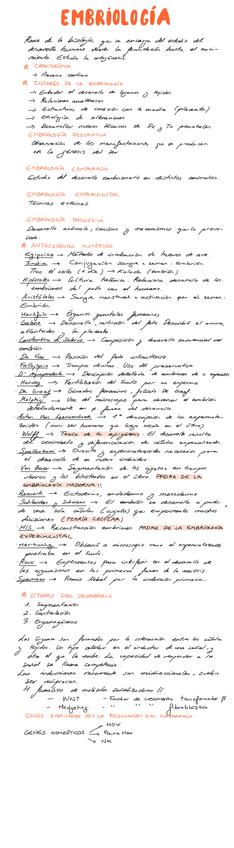 EMBRIOLOGÍA
Rama de la biología que se encarga del estudio del
desarrollo humano desde la fecundación hasta el naci-
miento. Estudia la ontogenia.
CARACTERÍSTICA
→ Proceso continuo
INTERÉS DE LA EMBRIOLOGÍA
→ Entender el desarrollo de órganos y tejidos.
→ Relaciones anatómicas
→ Estructura de relación con la madre (placenta)
→ Etiología de alteraciones
→ Desarrollar nuevas técnicas de Dx y Tx prenatales
EMBRIOLOGÍA DESCRIPTIVA
Observación de las manifestaciones que se producen
en la génesis del ser
EMBRIOLOGÍA COMPARADA
Estudio del desarrollo embrionario en distintos animales.
EMBRIOLOGÍA EXPERIMENTAL
Técnicas externas
EMBRIOLOGÍA PATOLÓGICA
Desarrollo anómalo, causas y mecanismos que lo provo-
can.
ANTECEDENTES HISTÓRICOS
Egipcios → Métodos de incubación de huevos de aves.
India → Conjugación sangre y semen: Embrión
Tras el coito → Kalada (embrión)
Hipócrates → Cultura helénica. Relaciona desarrollo de los
embriones del pollo con el humano.
Aristóteles → Sangre menstrual + activación por el semen:
Embrión.
Herófilo → Órganos genitales femeninos
Galeno → Desarrollo, nutrición del feto. Describió el amnios,
alantoides y la placenta.
→ Composición y desarrollo secuencial del
embrión
Da Vinci → Posición del feto intrauterino
Falloppio → Trompa uterina. Uso del preservativo
→ Descripción detallada de embriones de
Harvey → Fertilización del óvulo por un esperma
De Graaf → Gónadas femeninas, folículo de Graaf.
Malpighi → Uso del microscopio para observar el embrión
detalladamente en fases del desarrollo.
→ 1ª descripción de los esperma-
tozoides (mini ser humano
Wolff → Teoría de la epigénesis: El desarrollo resulta
del crecimiento y diferenciación de células especializadas
Spallanzani → Ovocito y espermatozoide necesario para
el desarrollo de un nuevo individuo
Von Baer → Segmentación de los cigotos en trompa
uterina y los blastocitos en el útero. PADRE DE LA
EMBRIOLOGÍA MODERNA
Remark → Ectodermo, endodermo y mesodermo
Schleiden y Schwan → El embrión se desarrolla a partir
de una sola célula (cigoto) que experimenta muchas
divisiones (TEORÍA CELULAR)
HIS → Reconstrucción embriones PADRE DE LA EMBRIOLOGÍA
EXPERIMENTAL
→ Observó a microscopio cómo el espermatozoide
penetraba en el óvulo.
Roux → Experimentos para interferir en el desarrollo de
los organismos en las primeras fases de la mitosis.
Spemann → Premio Nobel por la inducción primaria.
ETAPAS DEL DESARROLLO
1. Segmentación
2. Gastrulación
3. Organogénesis
Los órganos son formados por la interacción entre las células
y tejidos. Un tipo celular es el inductor de una señal y
otro el que la recibe. La capacidad de responder a la
señal se llama competencia.
Las inducciones raramente son unidireccionales, suelen
ser recíprocas.
4 familias de moléculas señalizadoras!!
- WNT - Factor de crecimiento transformador β
- Hedgehog - " " " fibroblástico
GENES IMPLICADOS EN LA REGULACIÓN DEL DESARROLLO
HOX
GENES HOMEÓTICOS Para Hox
NK